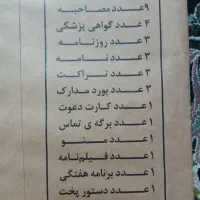 ۹عدد مصاحبه
۴ عدد گواهی پزشکی
۳ عدد روزنامه
۳ عدد نامه
۳ عدد تراکت
۳ عدد بورد مدارک
۱ عدد کارت دعوت
۱ عدد برگه ی تماس
۱ عدد منو
۱ عدد فیلم‌نامه
۱ عدد برنامه هفتگی
۱ عدد دستور پخت